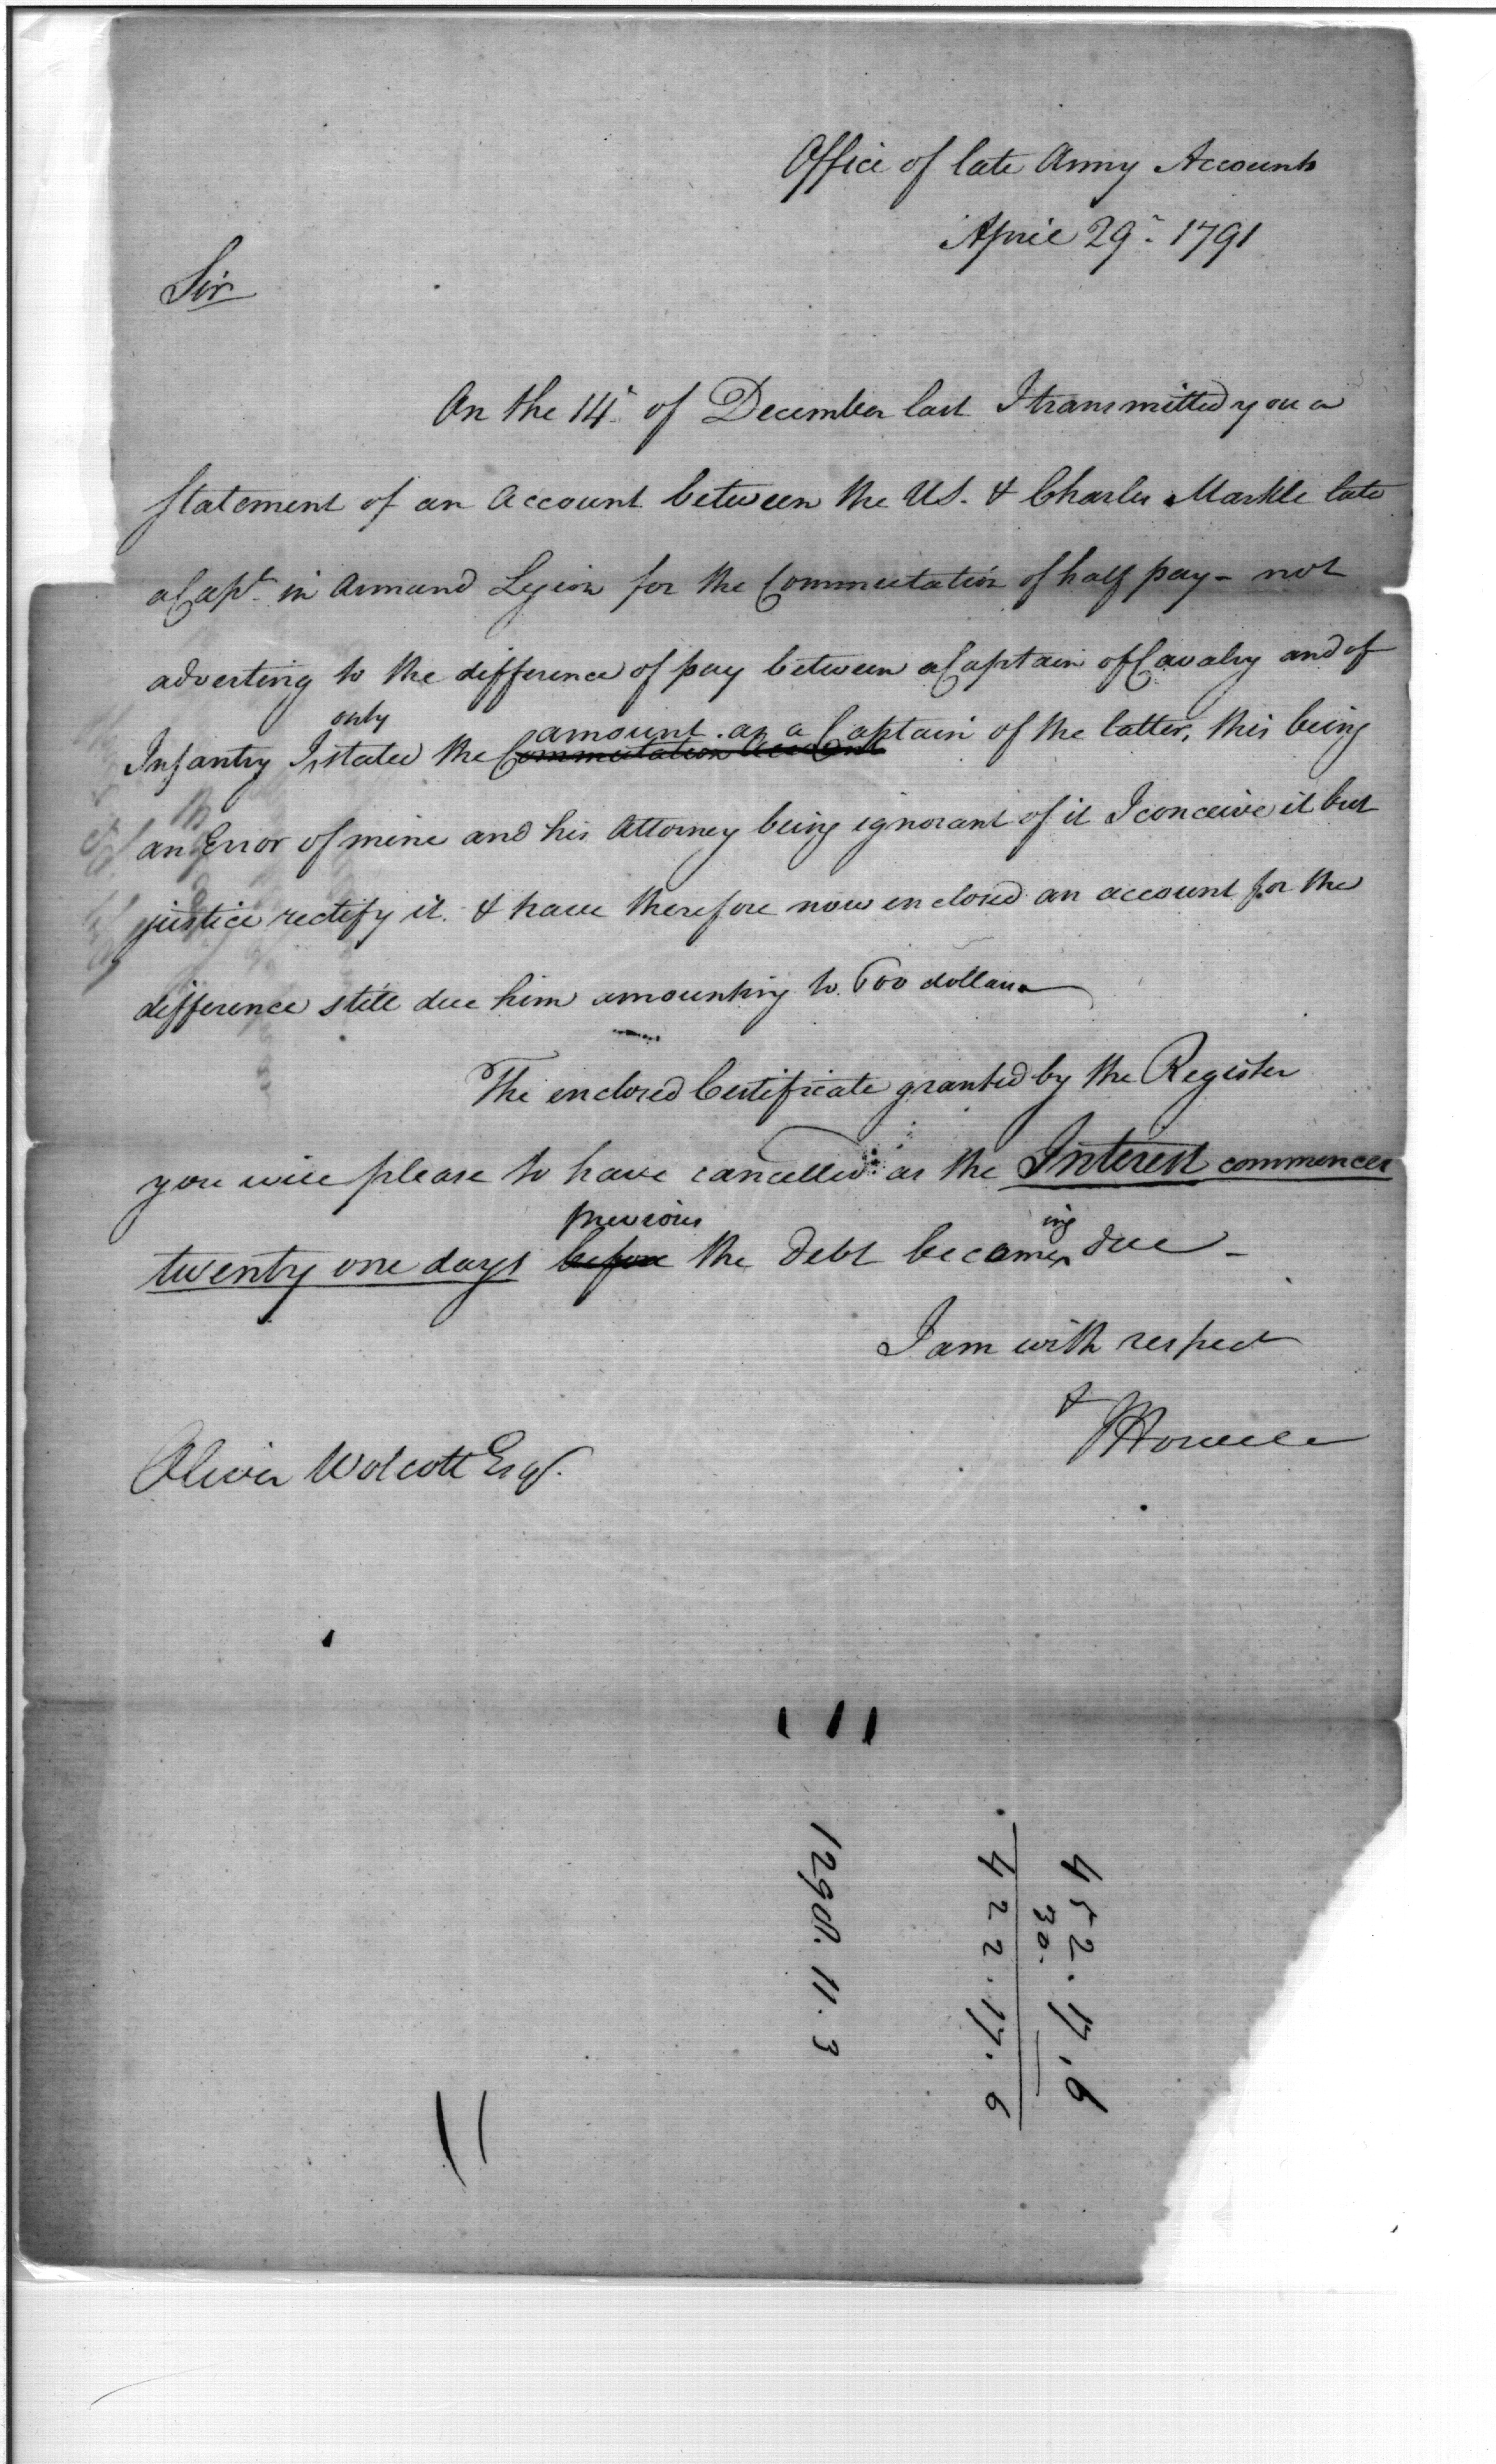 Office of late Army Accounts
April 29. 1791
Sir
On the 14 of December last I transmitted you a
statement of an Account between the US. & Charles Markle late
a Capt in Armand Legion for the Commutation of half pay - not
adverting to the difference of pay between a Captain of Cavalry and of
only
amount as a
Infantry I stated the Commutation Captain of the latter, this being
an Error of mine and his Attorney being ignorant of it I conceive it but
justice rectify it. & have therefore now enclosed an account for the
difference still due him amounting to 600 dollars
The enclosed Certificate granted by the Register
you will please to have cancelled as the Interest commences
previous ing
twenty one days before the debt becomes due -
I am with respect
&
JHowell
Oliver Wolcott Esqr.
452.17.6
30.
422.17.6
1290. 11. 3